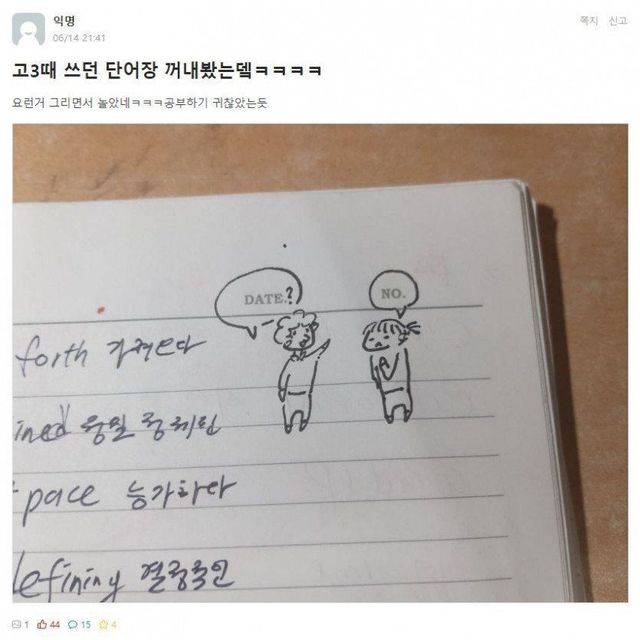 익명
쪽지 신고
06/14 21:41
고3때 쓰던 단어장 꺼내봤는뎈ㅋㅋㅋㅋ
요런거 그리면서 놀았네ㅋㅋㅋ공부하기 귀찮았는듯
DATE.?
NO.
forth 가져오다
ined
pace 능가하다
efining 결정적인
1 44 15 4